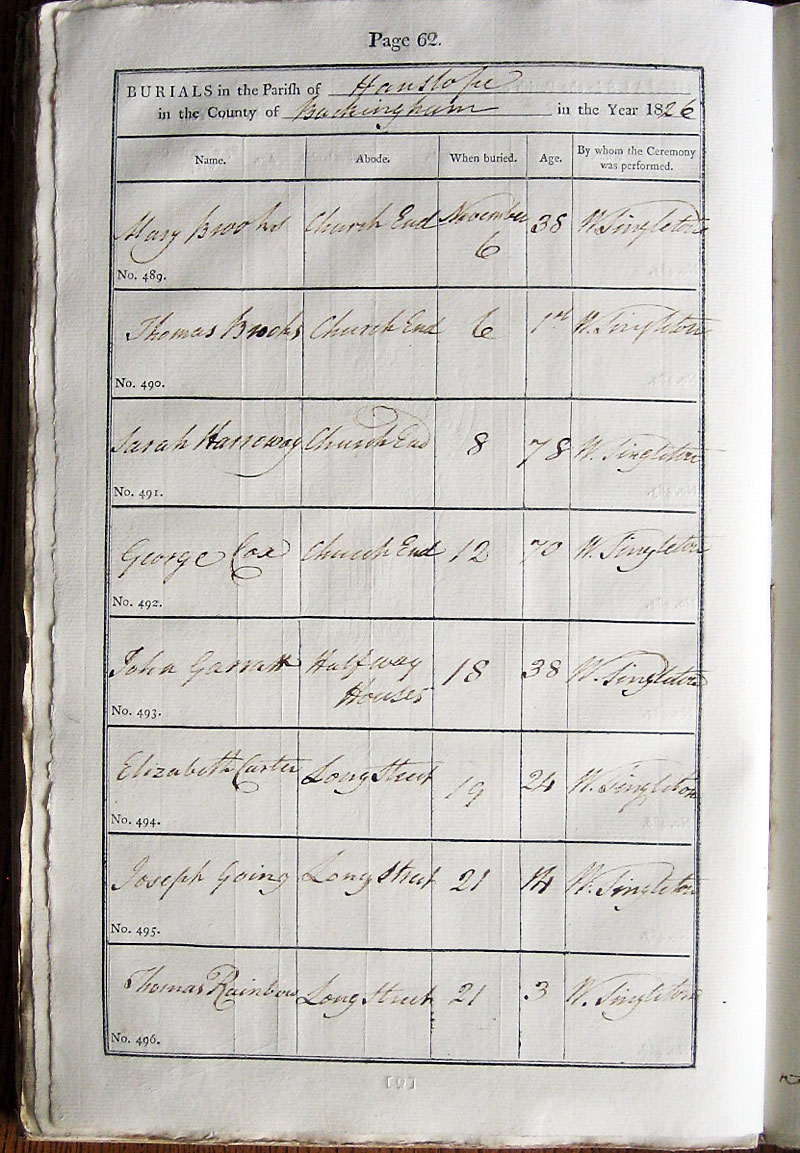 Page 62.
BURIALS in the Parish of Hanslope
in the County of Buckingham in the Year 1826
Name. Abode. When buried. Age. By whom the Ceremony was performed.
Mary Brooks Church End November 6 38 W. Singleton
No. 489.
Thomas Brooks Church End 6 W. Singleton
No. 490.
Sarah Harreway Church End 8 78 W. Singleton
No. 491.
George Cox Church End 12 70 W. Singleton
No. 492.
John Garratt Halfway Houses 18 38 W. Singleton
No. 493.
Elizabeth Carter Long Street 19 24 W. Singleton
No. 494.
Joseph Going Long Street 21 14 W. Singleton
No. 495.
Thomas Rainbow Long Street 21 3 W. Singleton
No. 496.